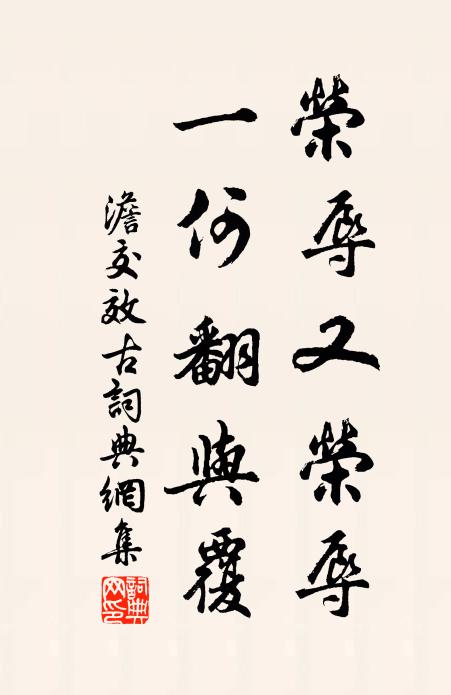 榮辱又榮辱
一何翻與覆
澹交效古詞典網集
詞典網印